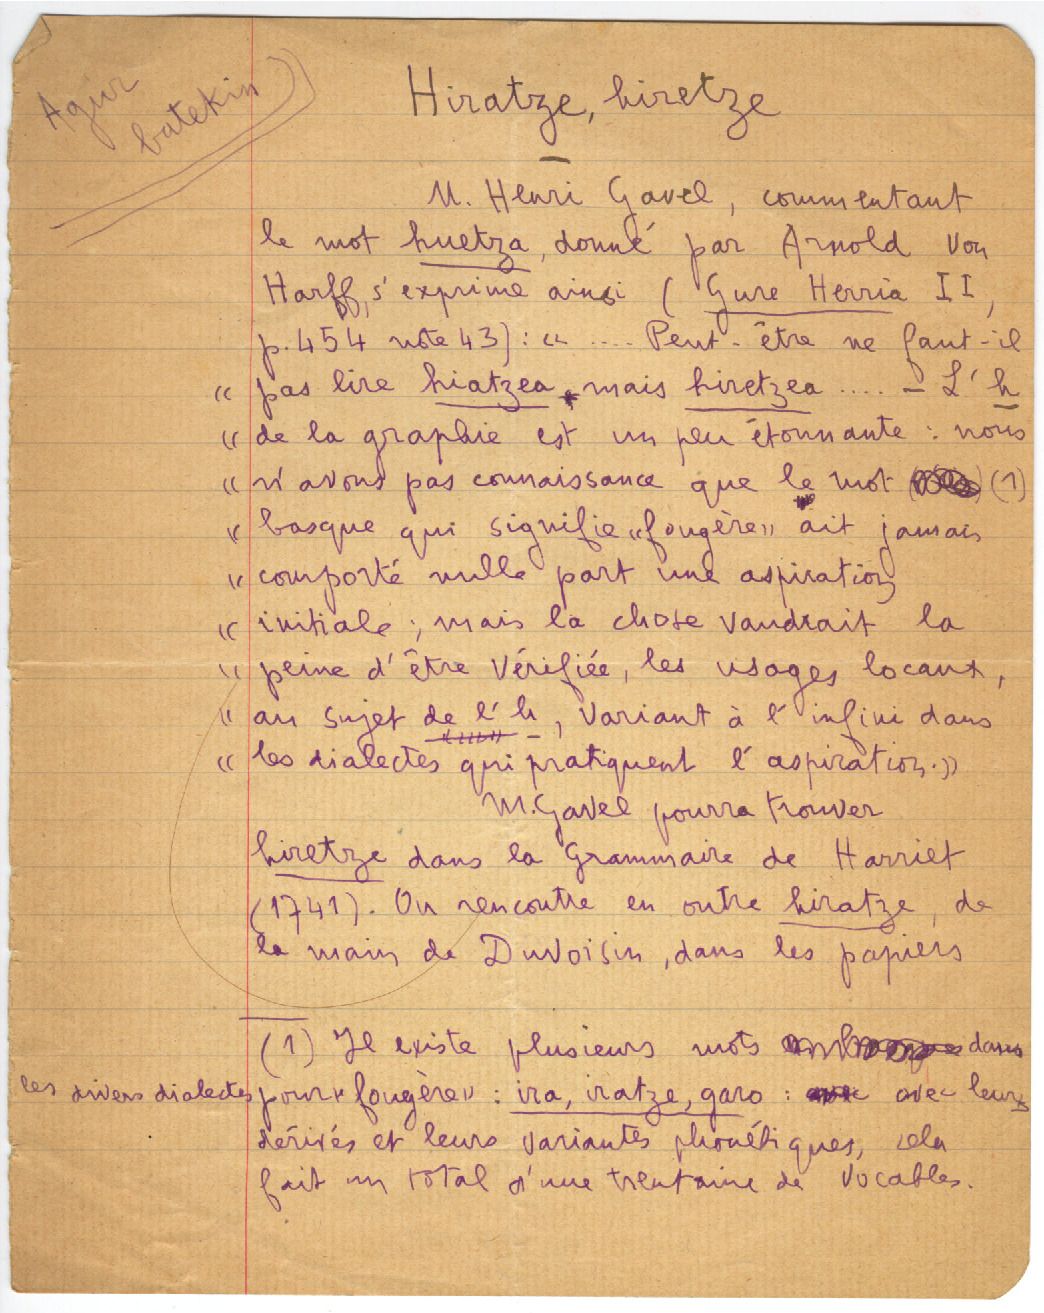 Agur
batekin
Hiratze, hiretze
M. Henri Gavel, commentant
le mot huetza, donné par Arnold von
Harff, s'exprime ainsi (Gure Herria II,
p. 454 note 43) : « .... Peut-être ne faut-il
« pas lire hiatzea, mais hiretzea .... – L'h
« de la graphie est un peu étonnante : nous
« n'avons pas connaissance que le mot (1)
« basque qui signifie «fougère» ait jamais
« comporté nulle part une aspiration
« initiale ; mais la chose vaudrait la
« peine d'être vérifiée, les usages locaux,
« au sujet de l'h, variant à l'infini dans
« les dialectes qui pratiquent l'aspiration.»
M. Gavel pourra trouver
hiretze dans la Grammaire de Harriet
(1741). On rencontre en outre hiratze, de
la main de Duvoisin, dans les papiers
(1) Il existe plusieurs mots dans
les divers dialectes pour «fougère» : ira, iratze, garo : avec leurs
dérivés et leurs variantes phonétiques, cela
fait un total d'une trentaine de vocables.